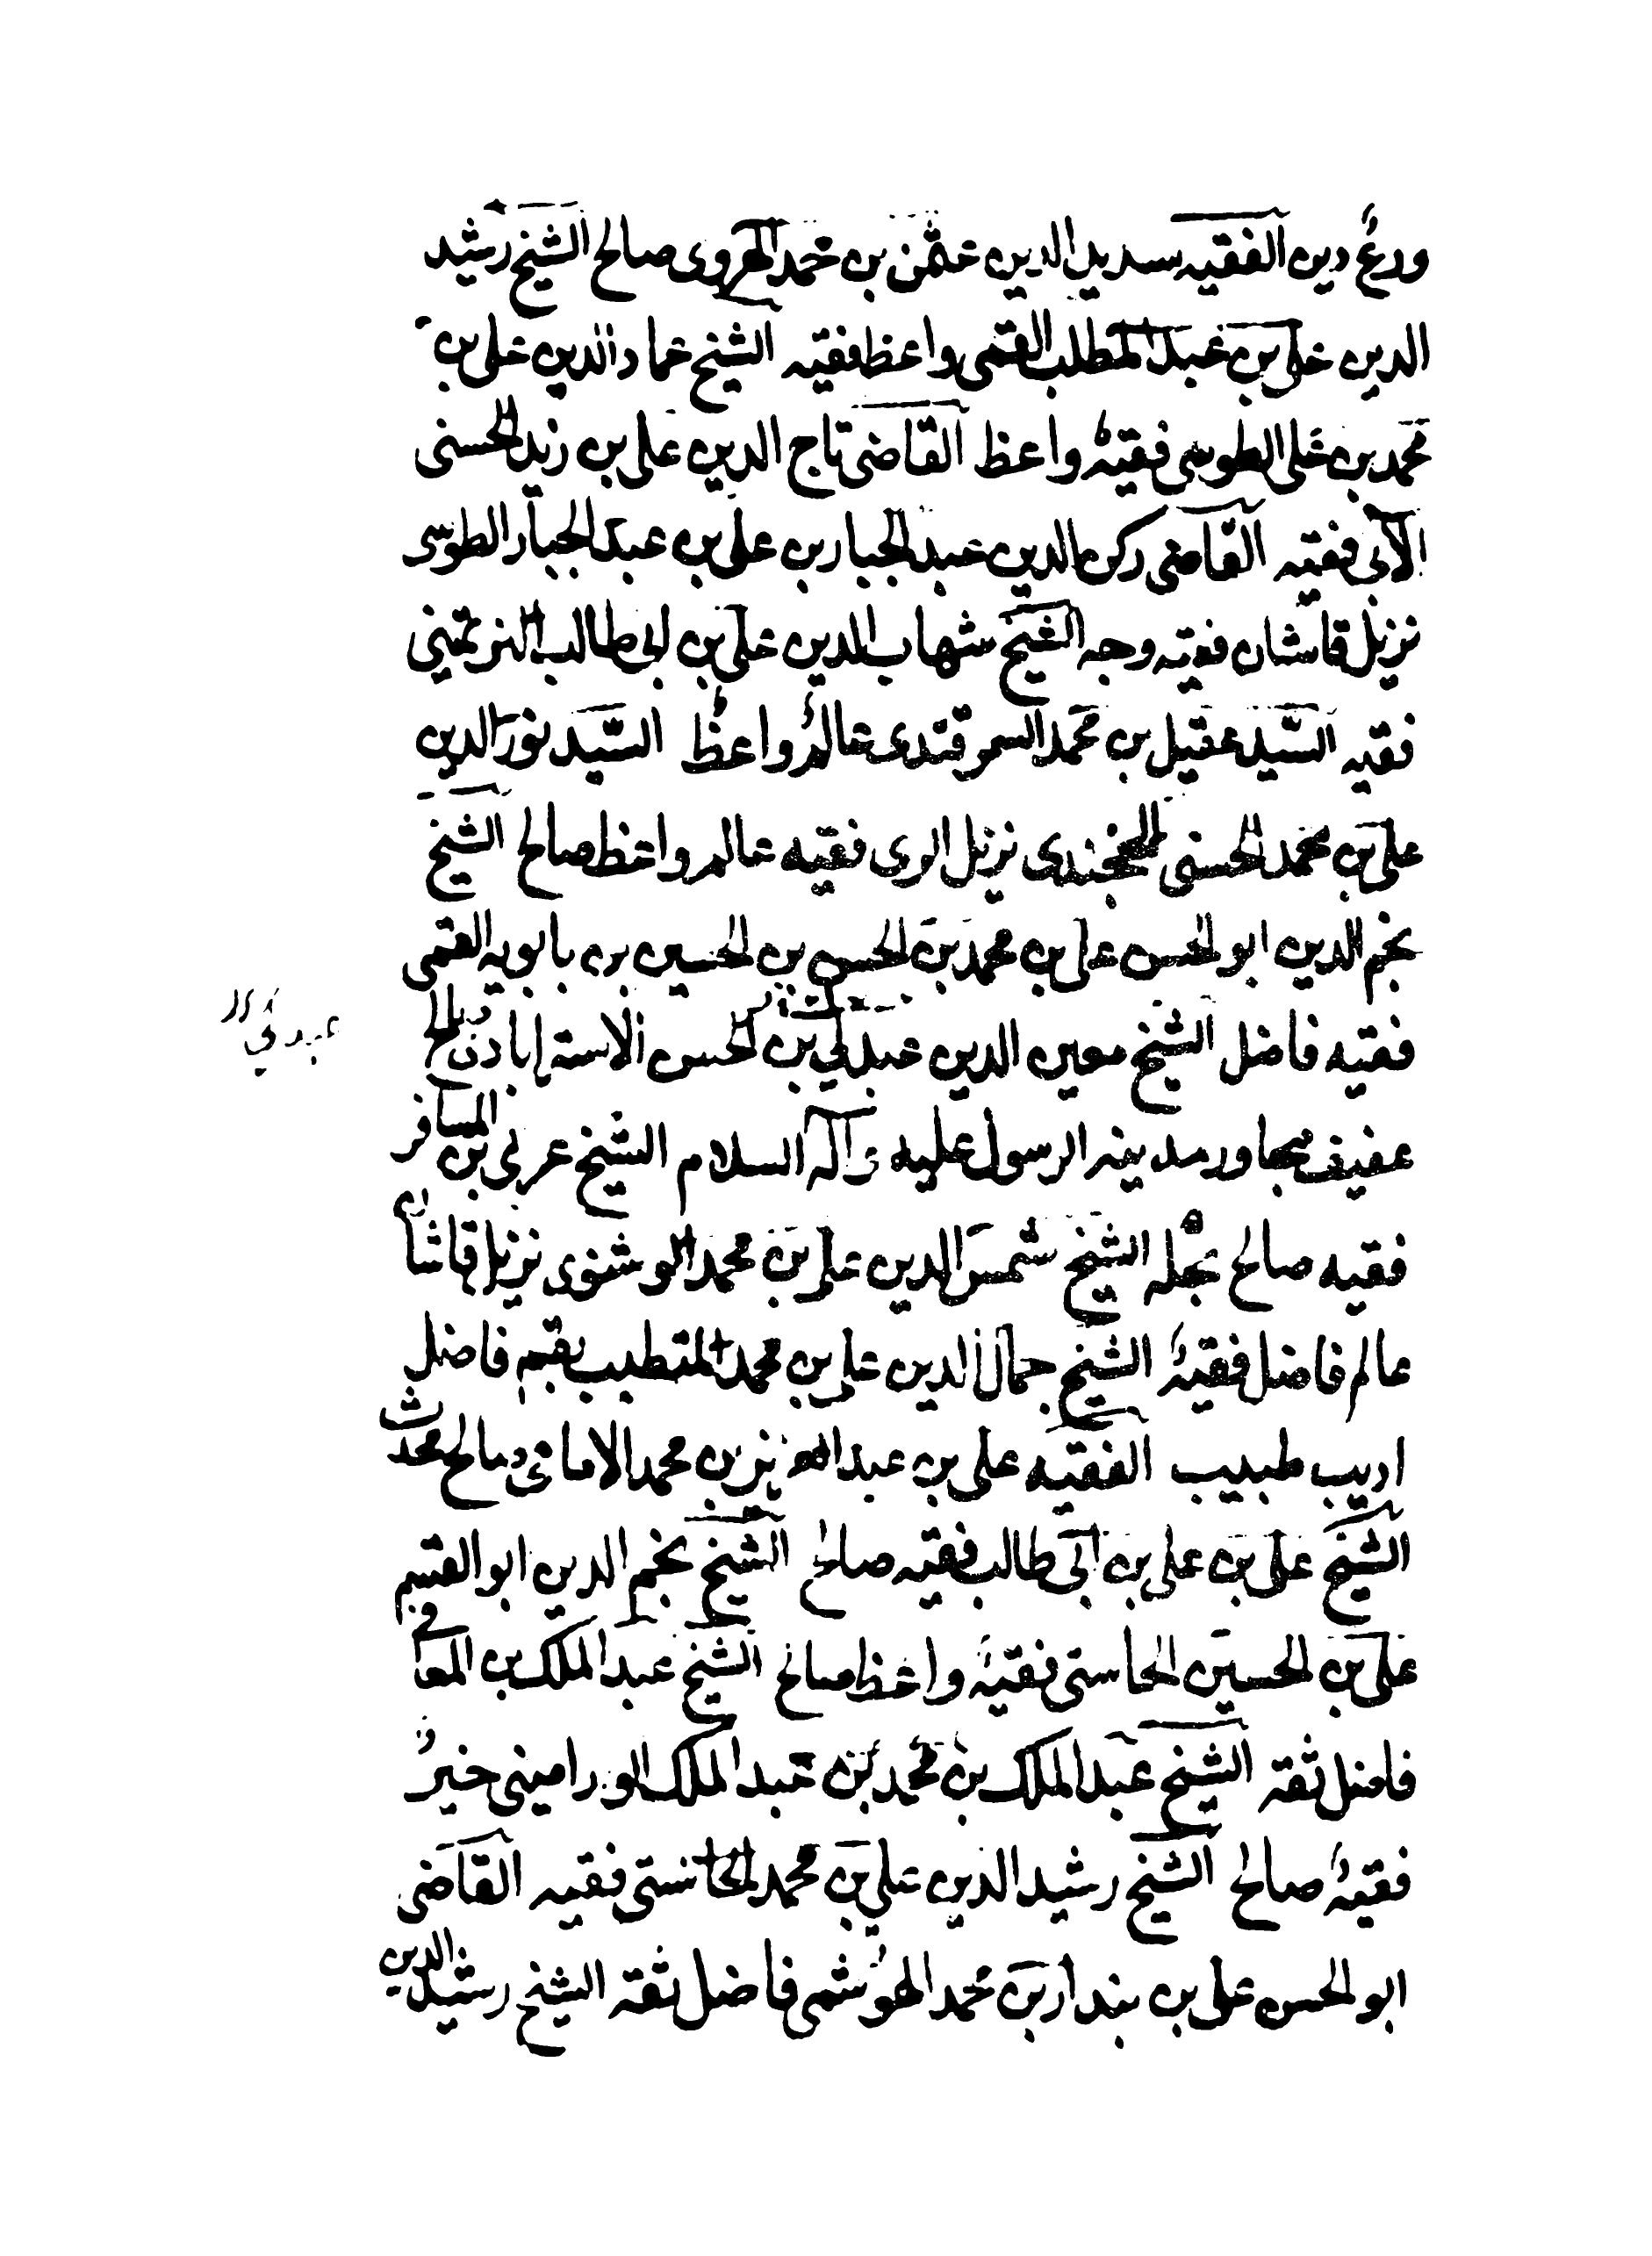 ورع دين الفقيه سديد الدين عثمن بن محمد الهروى صالح الشيخ رشيد
الدين على بن عبد المطلب القمى واعظ فقيه الشيخ عماد الدين على بن
محمد بن على الطوسى فقيه واعظ القاضى تاج الدين على بن زيد الحسنى
الآبى فقيه القاضى ركن الدين عبد الجبار بن على بن عبد الجبار الطوسى
نزيل قاشان فقيه وجه الشيخ شهاب الدين على بن ابى طالب
فقيه السيد عقيل بن محمد السمرقندى عالم واعظ السيد نور الدين
على بن محمد الحسنى الخجندى نزيل الرى فقيه عالم واعظ صالح الشيخ
نجم الدين ابو الحسن على بن محمد بن الحسن بن الحسين بن بابويه القمى
فقيه فاضل الشيخ معين الدين بن الحسن الاستراباذى صالح
عفيف مجاور مدينه الرسول عليه وآله السلام الشيخ عربى بن المسافر
فقيه صالح بحله الشيخ شمس الدين على بن محمد الوشنوى نزيل قاشان
عالم فاضل فقيه الشيخ جمال الدين على بن محمد المتطبب بقم فاضل
اديب طبيب الفقيه على بن عبد العزيز بن محمد الامامى صالح محدث
الشيخ على بن على بن ابى طالب فقيه صالح الشيخ نجم الدين ابو القسم
على بن الحسين الحاستى فقيه واعظ صالح الشيخ عبد الملك بن المعافى
فاضل ثقه الشيخ عبد الملك بن محمد بن عبد الملك الورامينى خير
فقيه صالح الشيخ رشيد الدين على بن محمد الحاستى فقيه القاضى
ابو الحسن على بن بندار بن محمد الهوشمى فاضل ثقه الشيخ رشيد الدين